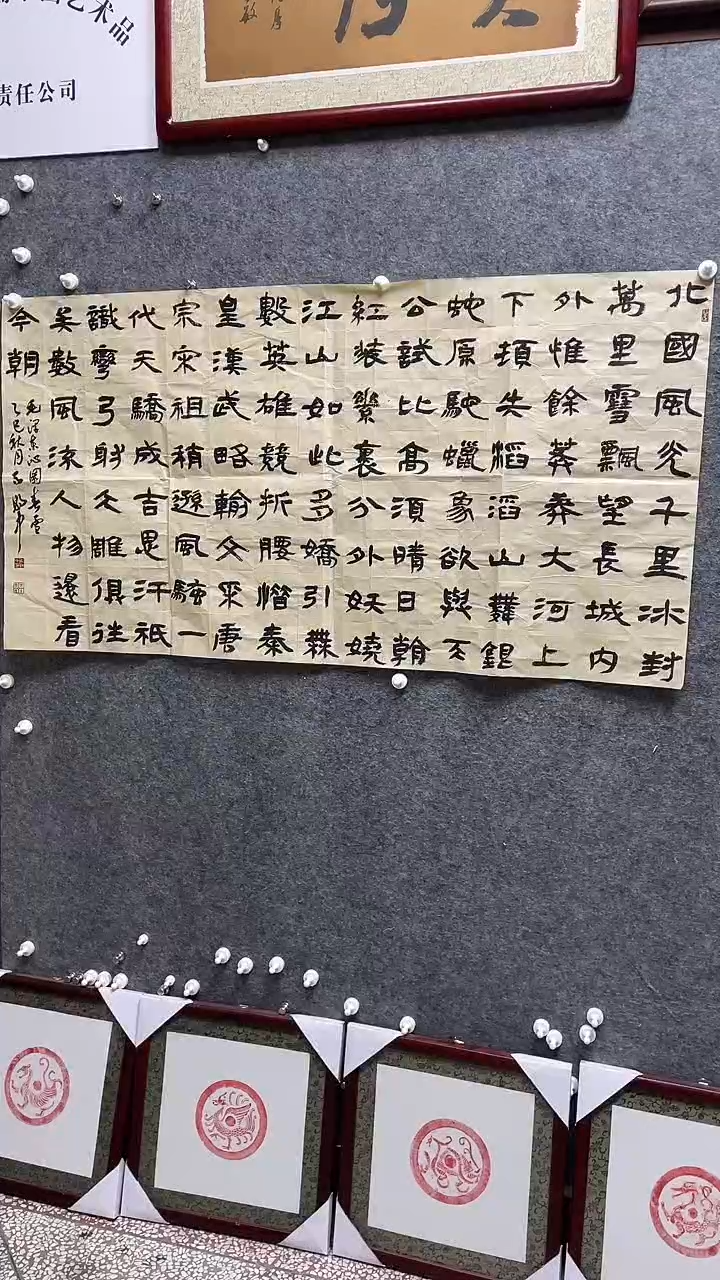 艺术品
责任公司
北國風光千里冰封
萬里雪飄望長城内
外惟餘莽莽大河上
下頓失滔滔山舞銀
蛇原馳蠟象欲與天
公試比高須晴日看
紅裝素裹分外妖嬈
江山如此多嬌引無
數英雄競折腰惜秦
皇漢武略輸文采唐
宗宋祖稍遜風騷一
代天驕成吉思汗祇
識彎弓射大雕俱往
矣數風流人物還看
今朝
毛澤東沁園春雪
乙巳秋月